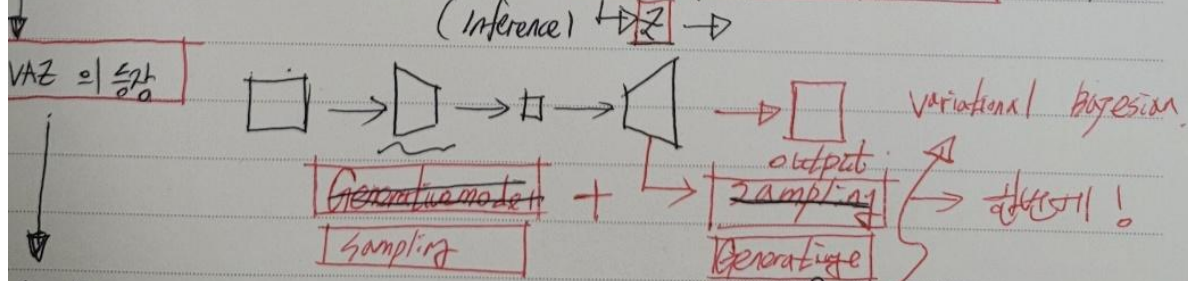 (Inference) Z
VAZ 의 등장
Variational Bayesian.
output
Generative model + Sampling → 한번에!
Sampling Generative